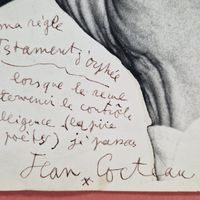 ma règle
Testament d'orphée
lorsque la revue
intervenir le contrôle
lligence (la pire
poëts) j'ai passé
Jean Cocteau